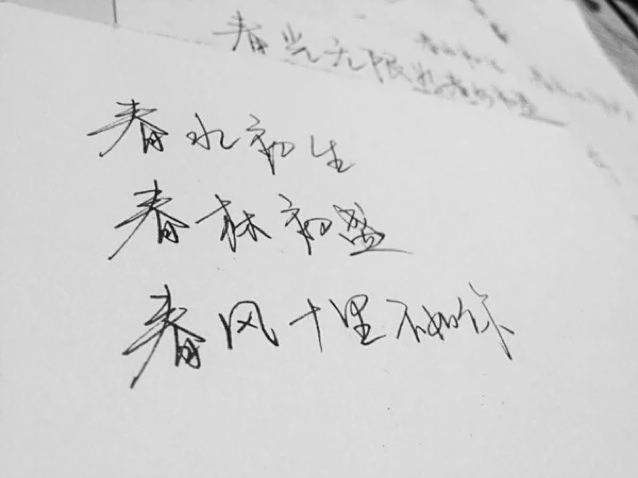 春光无限
春水初生
春林初盛
春风十里不如你